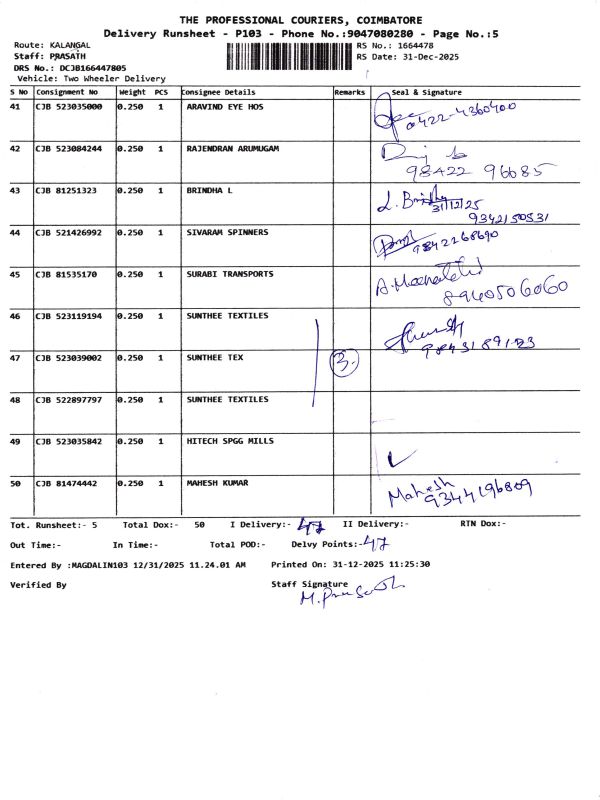 THE PROFESSIONAL COURIERS, COIMBATORE
Delivery Runsheet - P103 - Phone No.:9047080280 - Page No.:5
Route: KALANGAL RS No.: 1664478
Staff: PRASATH RS Date: 31-Dec-2025
DRS No.: DCJB166447805
Vehicle: Two Wheeler Delivery
S No Consignment No Weight PCS Consignee Details Remarks Seal & Signature
41 CJB 523035000 0.250 1 ARAVIND EYE HOS 0422-4360400
42 CJB 523084244 0.250 1 RAJENDRAN ARUMUGAM
98422 96685
43 CJB 81251323 0.250 1 BRINDHA L L. Brindha
31/12/25
9342150531
44 CJB 521426992 0.250 1 SIVARAM SPINNERS 9842268690
45 CJB 81535170 0.250 1 SURABI TRANSPORTS
8940506060
46 CJB 523119194 0.250 1 SUNTHEE TEXTILES
98431 89123
47 CJB 523039002 0.250 1 SUNTHEE TEX 3
48 CJB 522897797 0.250 1 SUNTHEE TEXTILES
49 CJB 523035842 0.250 1 HITECH SPGG MILLS
50 CJB 81474442 0.250 1 MAHESH KUMAR Mahesh
9344196809
Tot. Runsheet:- 5 Total Dox:- 50 I Delivery:- 47 II Delivery:- RTN Dox:-
Out Time:- In Time:- Total POD:- Delvy Points:- 47
Entered By :MAGDALIN103 12/31/2025 11.24.01 AM Printed On: 31-12-2025 11:25:30
Verified By Staff Signature
M. Prasath